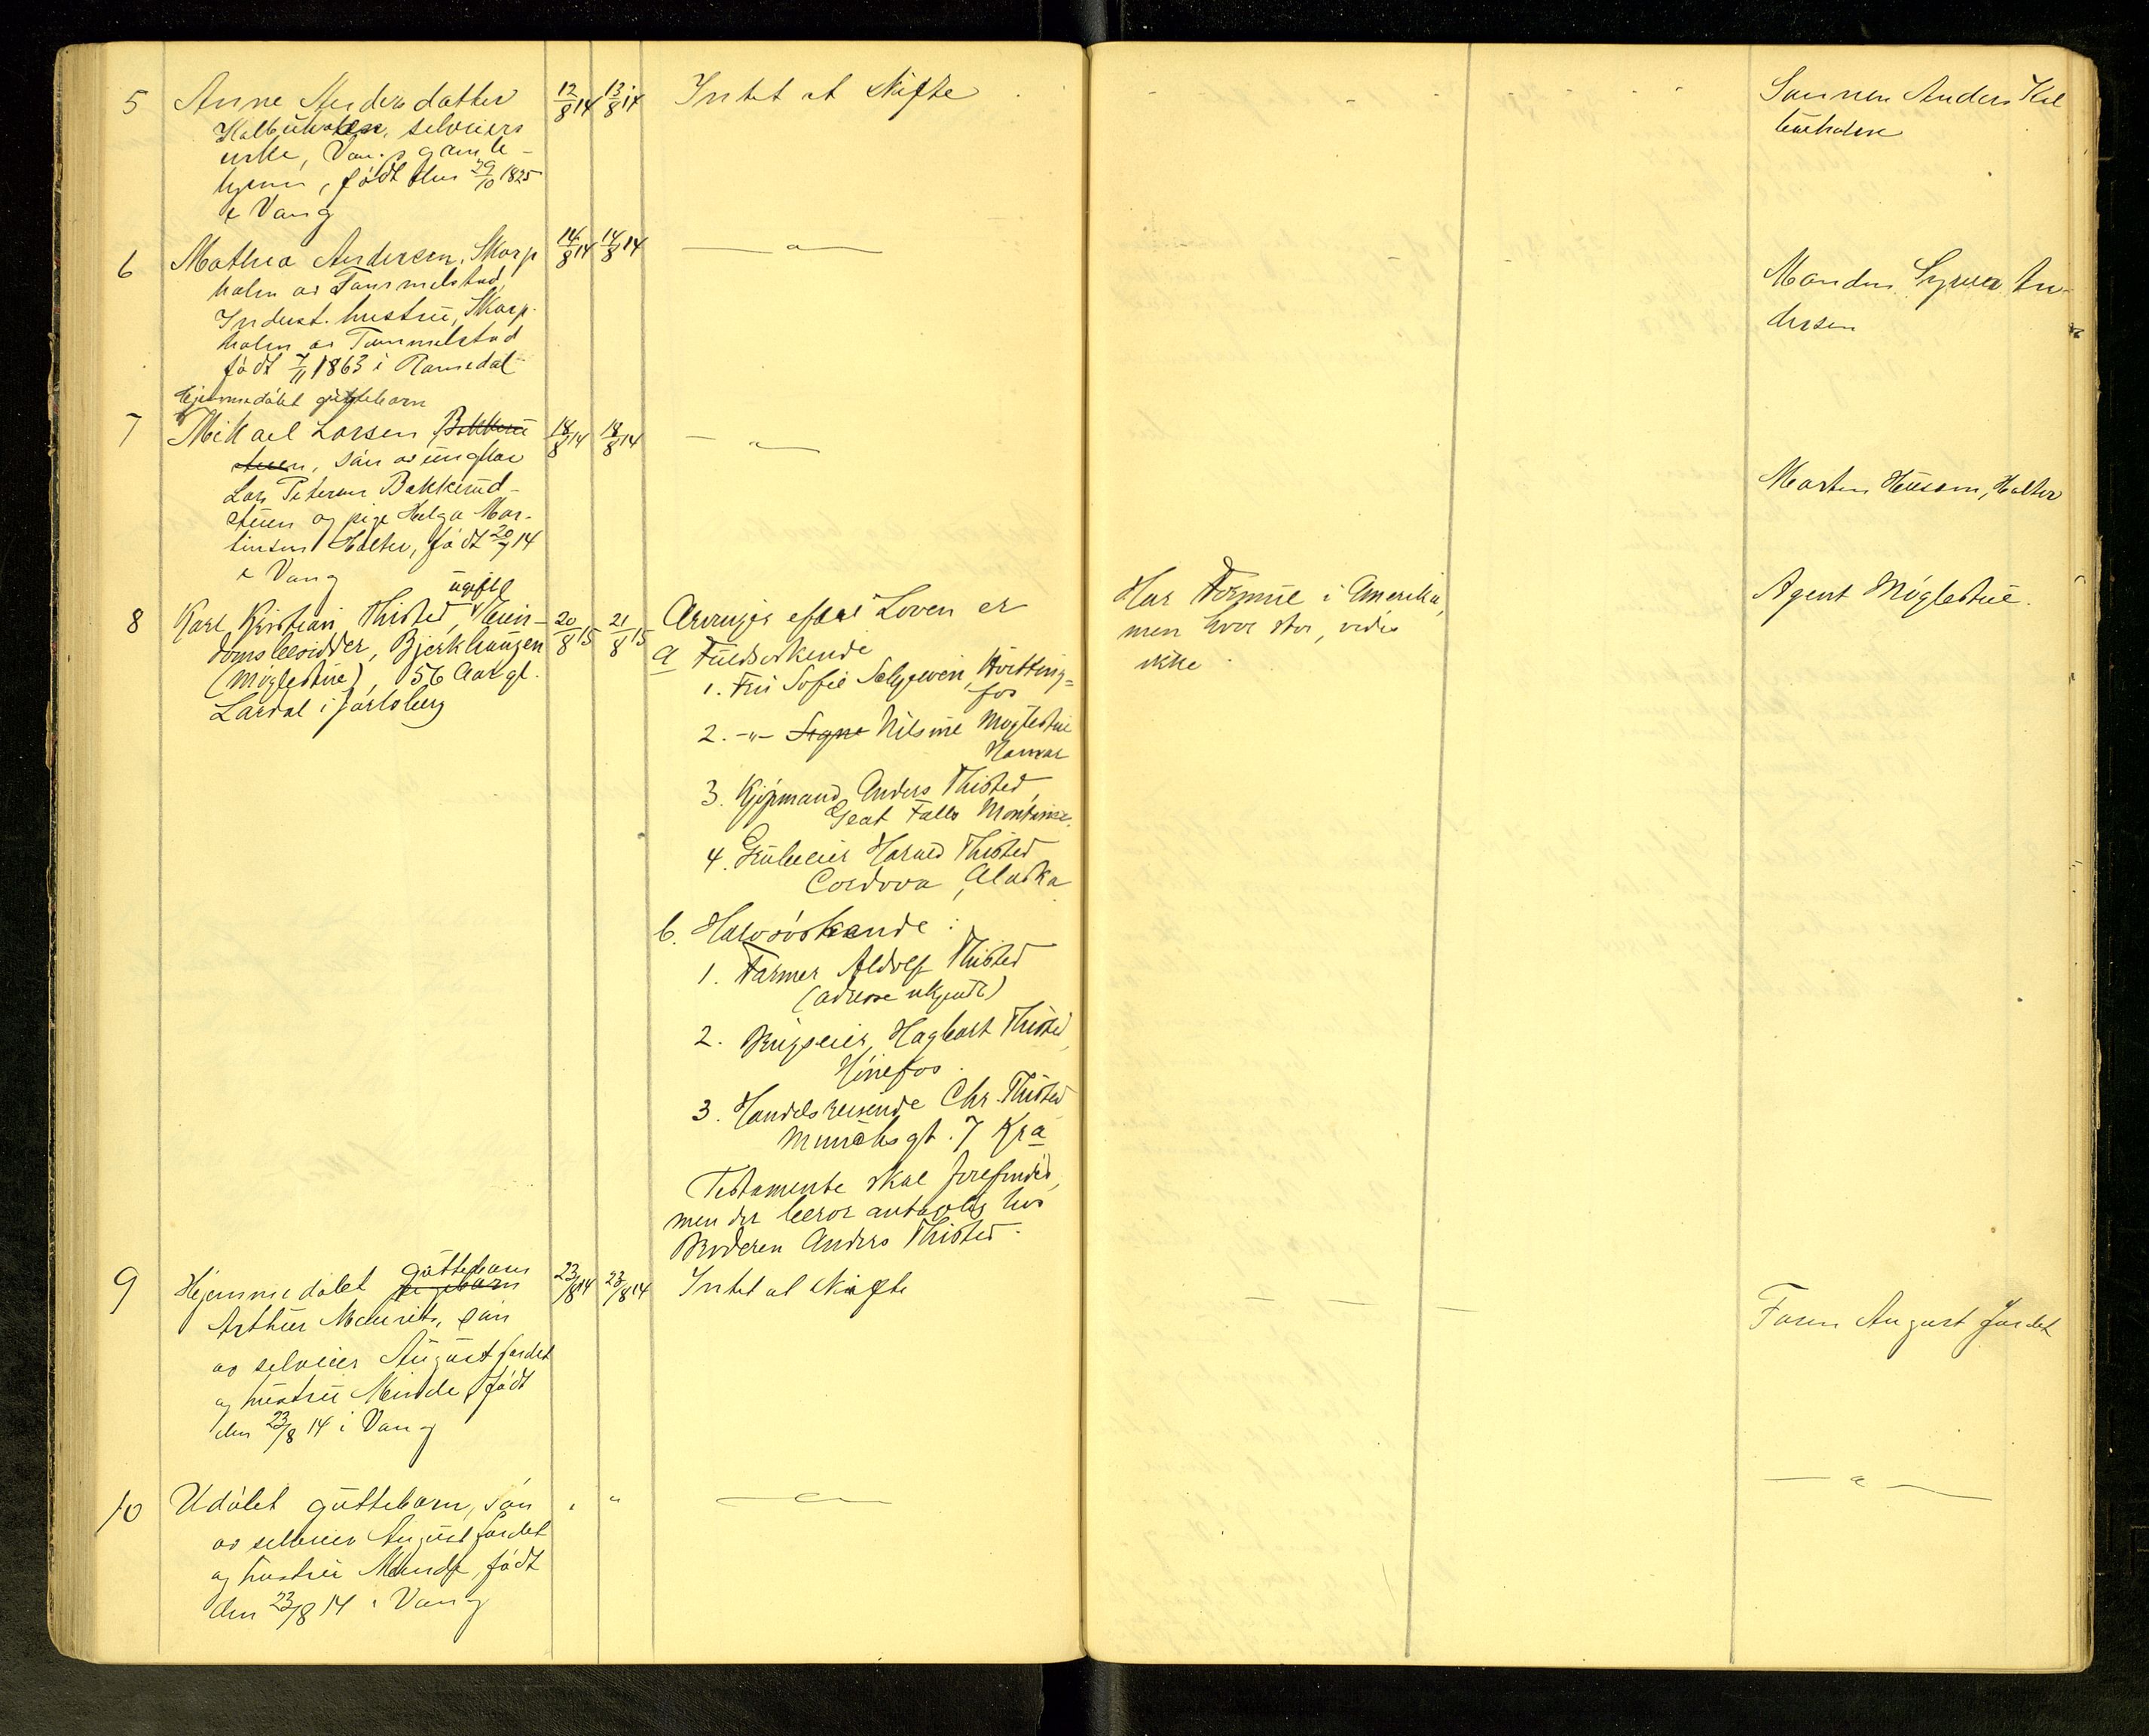 5 Anne Andersdatter 12/8 14 13/8 14 Intet at skifte Sønnen Anders Kal
selveiers
enke, Vangs gamle-
hjem, født den 29/10 1825
i Vang
6 Mathea Andersen, Skarp 14/8 14 14/8 14 — " — Manden Syver An-
holen av Tommelstad, dersen
Indest. hustru, Skarp-
holen av Tommelstad
født 7/11 1863 i Romedal
Hjemmedøbt guttebarn
7 Mikael Larsen Bakkerud 18/8 14 18/8 14 — " — Marten Halter
stuen, søn av ungkar
Lars Petersen Bakkerud-
stuen og pige Helga Mar-
tinsen Halter, født 20/7 14
i Vang
ugift
8 Karl Kristian Thisted, Eien- 20/8 15 21/8 15 Arvinger efter Loven er Har Formue i Amerika, Agent Møglestue.
domsbesidder, Bjerkhaugen a Fuldsøskende men hvor stor, vides
(Møglestue), 56 Aar gl. 1. Fru Sofie ikke
Lardal i Jarlsberg fos
2. -"- Signe Nilsine Møglestue
Hamar
3. Kjøpmand Anders Thisted,
Geat Falls Montana.
4. Harald Thisted
Cordova, Alaska
b. Halvsøskende:
1. Farmer Adolf Thisted
(adresse ukjendt)
2. Brugseier Hagbart Thisted,
Hønefos.
3. Handelsreisende Chr. Thisted
Munchsgt. 7 Kra
Testamente skal forefindes,
men der beror antagelig hos
Broderen Anders Thisted.
guttebarn
9 Hjemmedøbt pigebarn 23/8 14 23/8 14 Intet at skifte — — — Faren August Jordet
Arthur Maurits, søn
av selveier August Jordet
og hustru Minde, født
den 23/8 14 i Vang
10 Udøbt guttebarn, søn " " — " — — " —
av selveier August Jordet
og hustru Minde, født
den 23/8 14 i Vang